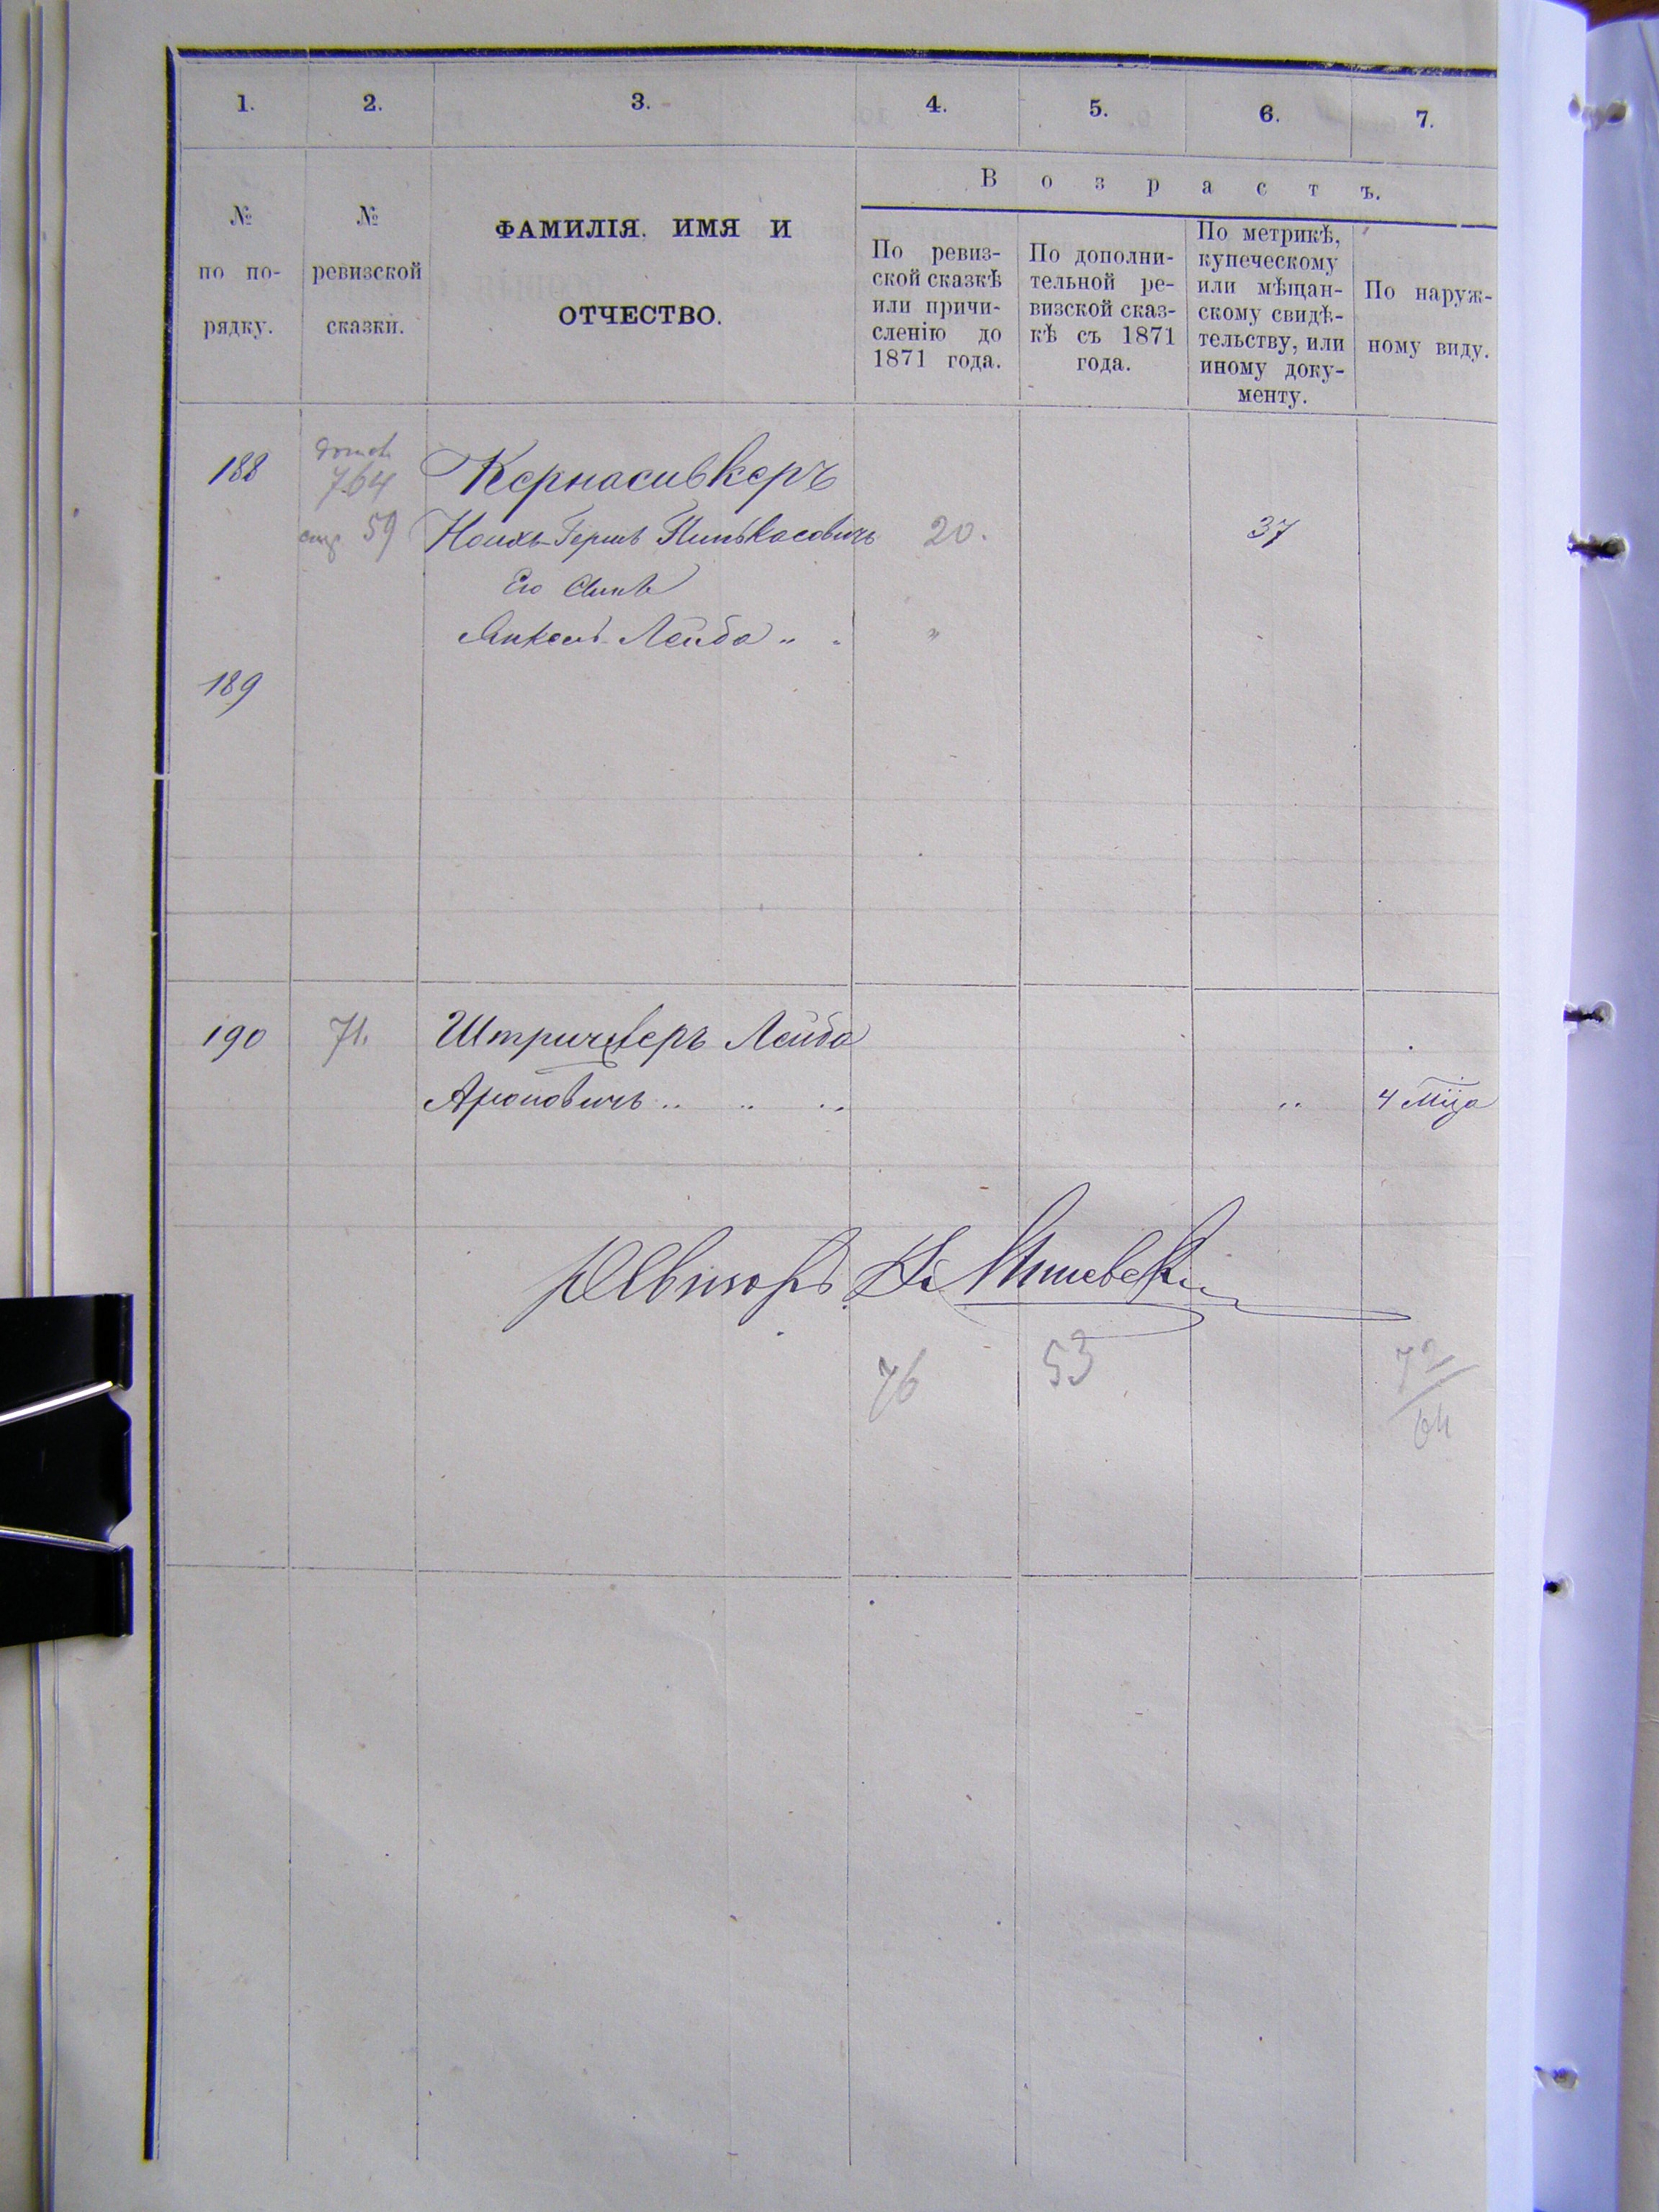 1. 2. 3. 4. 5. 6. 7.
Возрастъ.
№ по по-
рядку.
№ ревизской
сказки.
ФАМИЛІЯ. ИМЯ И
ОТЧЕСТВО.
По ревиз-
ской сказкѣ
или причи-
сленію до
1871 года.
По дополни-
тельной ре-
визской сказ-
кѣ съ 1871
года.
По метрикѣ,
купеческому
или мѣщан-
скому свидѣ-
тельству, или
иному доку-
менту.
По наруж-
ному виду.
188 764 Кернасивкеръ
59 Ноихъ-Гершъ Пинькасовичъ 20. 37
Его Сынъ
Янкель Лейба „ „
189
190 71. Штричверъ Лейба
Ароновичъ „ „ „ „ 4 Мца
Ревизоръ
76 53 72
64